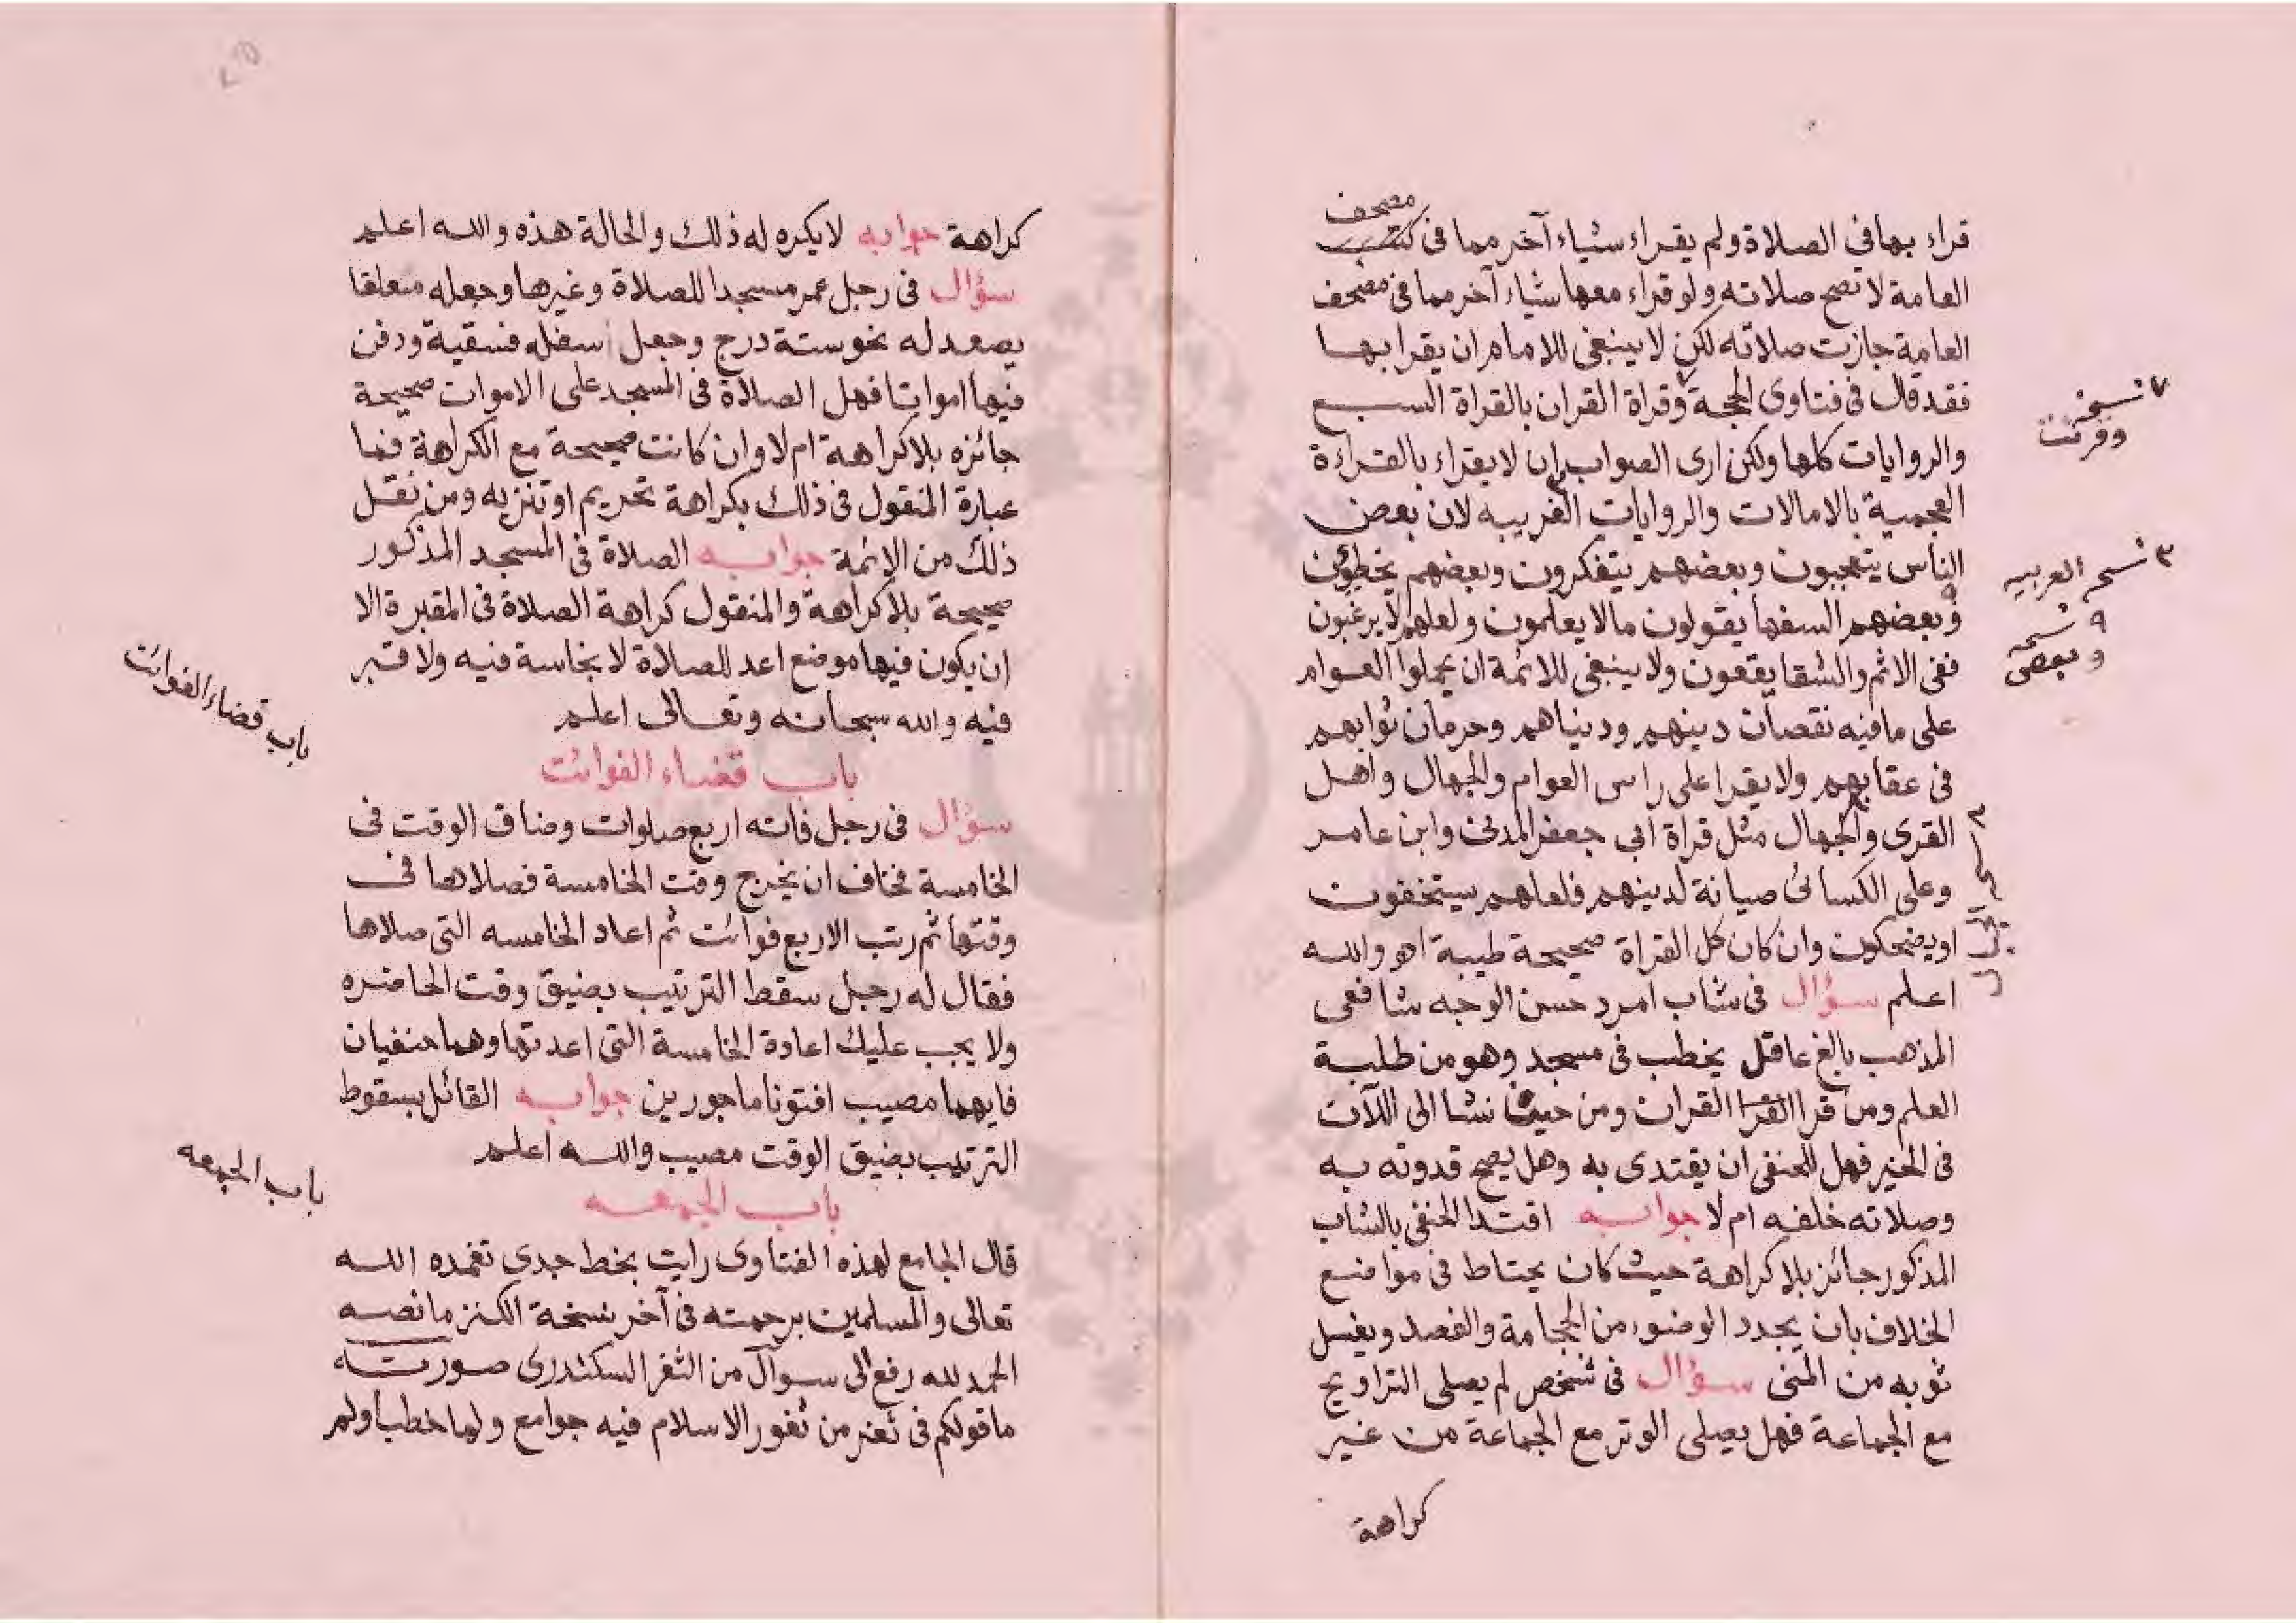 مصحف
قراء بها فى الصلاة ولم يقراء شياء آخر مما فى كتب
العامة لا تصح صلاته ولو قراء معها شياء آخر مما فى مصحف
العامة جازت صلاته لكن لا ينبغى للامام ان يقرا بها
فقد قال فى فتاوى الحجة وقراة القران بالقراة السبع
٧ نسخه
وقرئت
والروايات كلها ولكن ارى الصواب ان لا يقراء بالقراءة
العجمية بالامالات والروايات الغريبه لان بعض
٣ نسخه العربيه
الناس يتعجبون وبعضهم يتفكرون وبعضهم يخطئون
وبعضهم السفها يقولون ما لا يعلمون ولعلهم لا يرغبون
٩ نسخه
وبعض
ففى الاثم والشقا يقعون ولا ينبغى للائمة ان يحملوا العوام
على ما فيه نقصان دينهم ودنياهم وحرمان ثوابهم
فى عقابهم ولا يقرا على راس العوام والجهال واهل
القرى والجهال مثل قراة ابى جعفر المدنى وابن عامر
وعلى الكسائى صيانة لدينهم فلعلهم يستخفون
او يضحكون وان كان كل القراة صحيحة طيبة اهـ والله
اعلم سؤال فى شاب امرد حسن الوجه شافعى
المذهب بالغ عاقل يخطب فى مسجد وهو من طلبة
العلم ومن قرا القرا القران ومن حيث نشا الى الآن
فى الخير فهل للحنفى ان يقتدى به وهل يصح قدوته به
وصلاته خلفه ام لا جوابه اقتدا الحنفى بالشاب
المذكور جائز بلا كراهة حيث كان يحتاط فى مواضع
الخلاف بان يجدد الوضوء من الحجامة والفصد ويغسل
ثوبه من المنى سؤال فى شخص لم يصلى التراويح
مع الجماعة فهل يصلى الوتر مع الجماعة من غير
كراهة
كراهة جوابه لا يكره له ذلك والحالة هذه والله اعلم
سؤال فى رجل عمر مسجدا للصلاة وغيرها وجعله متعلقا
يصعد له نحو ستة درج وجعل اسفله فسقية ودفن
فيها امواتا فهل الصلاة فى المسجد على الاموات صحيحة
جائزه بلا كراهة ام لا وان كانت صحيحة مع الكراهة فما
عبارة المنقول فى ذلك بكراهة تحريم او تنزيه ومن نقل
ذلك من الائمة جوابه الصلاة فى المسجد المذكور
صحيحة بلا كراهة والمنقول كراهة الصلاة فى المقبرة الا
ان يكون فيها موضع اعد للصلاة لا نجاسة فيه ولا قبر
فيه والله سبحانه وتعالى اعلم
باب قضاء الفوائت
باب قضاء الفوائت
سؤال فى رجل فاته اربع صلوات وضاق الوقت فى
الخامسة فخاف ان يخرج وقت الخامسة فصلاها فى
وقتها ثم رتب الاربع فوائت ثم اعاد الخامسه التى صلاها
فقال له رجل سقط الترتيب بضيق وقت الحاضره
ولا يجب عليك اعادة الخامسة التى اعدتها وهما حنفيان
فايهما مصيب افتونا ماجورين جوابه القائل بسقوط
الترتيب بضيق الوقت مصيب والله اعلم
باب الجمعه
باب الجمعه
قال الجامع لهذه الفتاوى رايت بخط جدى تغمده الله
تعالى والمسلمين برحمته فى آخر نسخة الكنز ما نصه
الحمد لله رفع الى سوال من الثغر السكندرى صورته
ما قولكم فى ثغر من ثغور الاسلام فيه جوامع ولها خطبا ولهم